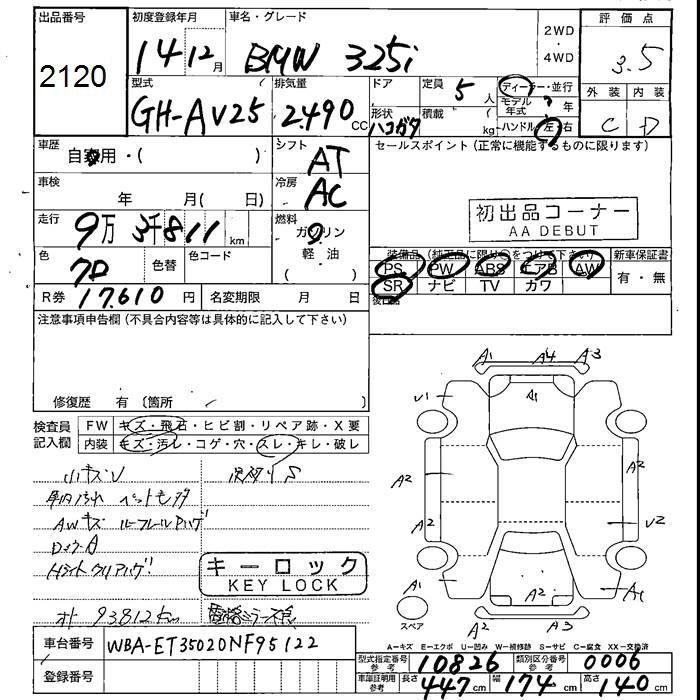 出品番号
2120
初度登録年月
14 12月
車名・グレード
BMW 325i
2WD
・
4WD
評価点
3.5
外装 内装
C D
型式
GH-AV25
排気量
2490CC
ドア
形状
ハコガタ
定員
5人
積載
kg
ディーラー・並行
モデル年式 年
ハンドル 左・右
車歴
自家用・( )
シフト
AT
セールスポイント (正常に機能するものに限ります)
車検
年 月( 日)
冷房
AC
初出品コーナー
AA DEBUT
走行
9万 3千811km
燃料
ガソリン
軽・油
( )
色
色替
色コード
装備品 (純正品に限り○をつけて下さい)
新車保証書
PS PW ABS エアB AW
有・無
SR ナビ TV カワ
後日品
R券 17.610円
名変期限 月 日
注意事項申告欄 (不具合内容等は具体的に記入して下さい)
修復歴 有 (箇所 )
検査員
記入欄
FW キズ・飛石・ヒビ割・リペア跡・X要
内装 キズ・汚レ・コゲ・穴・スレ・キレ・破レ
AWキズ ルーフレールハゲ
キーロック
KEY LOCK
93812km
車台番号 WBA-ET35020NF95122
登録番号
A1 A4 A3
U1 A1
A2 A2
A2 U2
A1 A2 A1
A2 A3
スペア
A-キズ E-エクボ U-凹み W-補修跡 S-サビ C-腐食 XX-交換済
型式指定番号 参考 10826
類別区分番号 参考 0006
車庫証明用 参考 長さ 447cm 幅 174cm 高さ 140cm